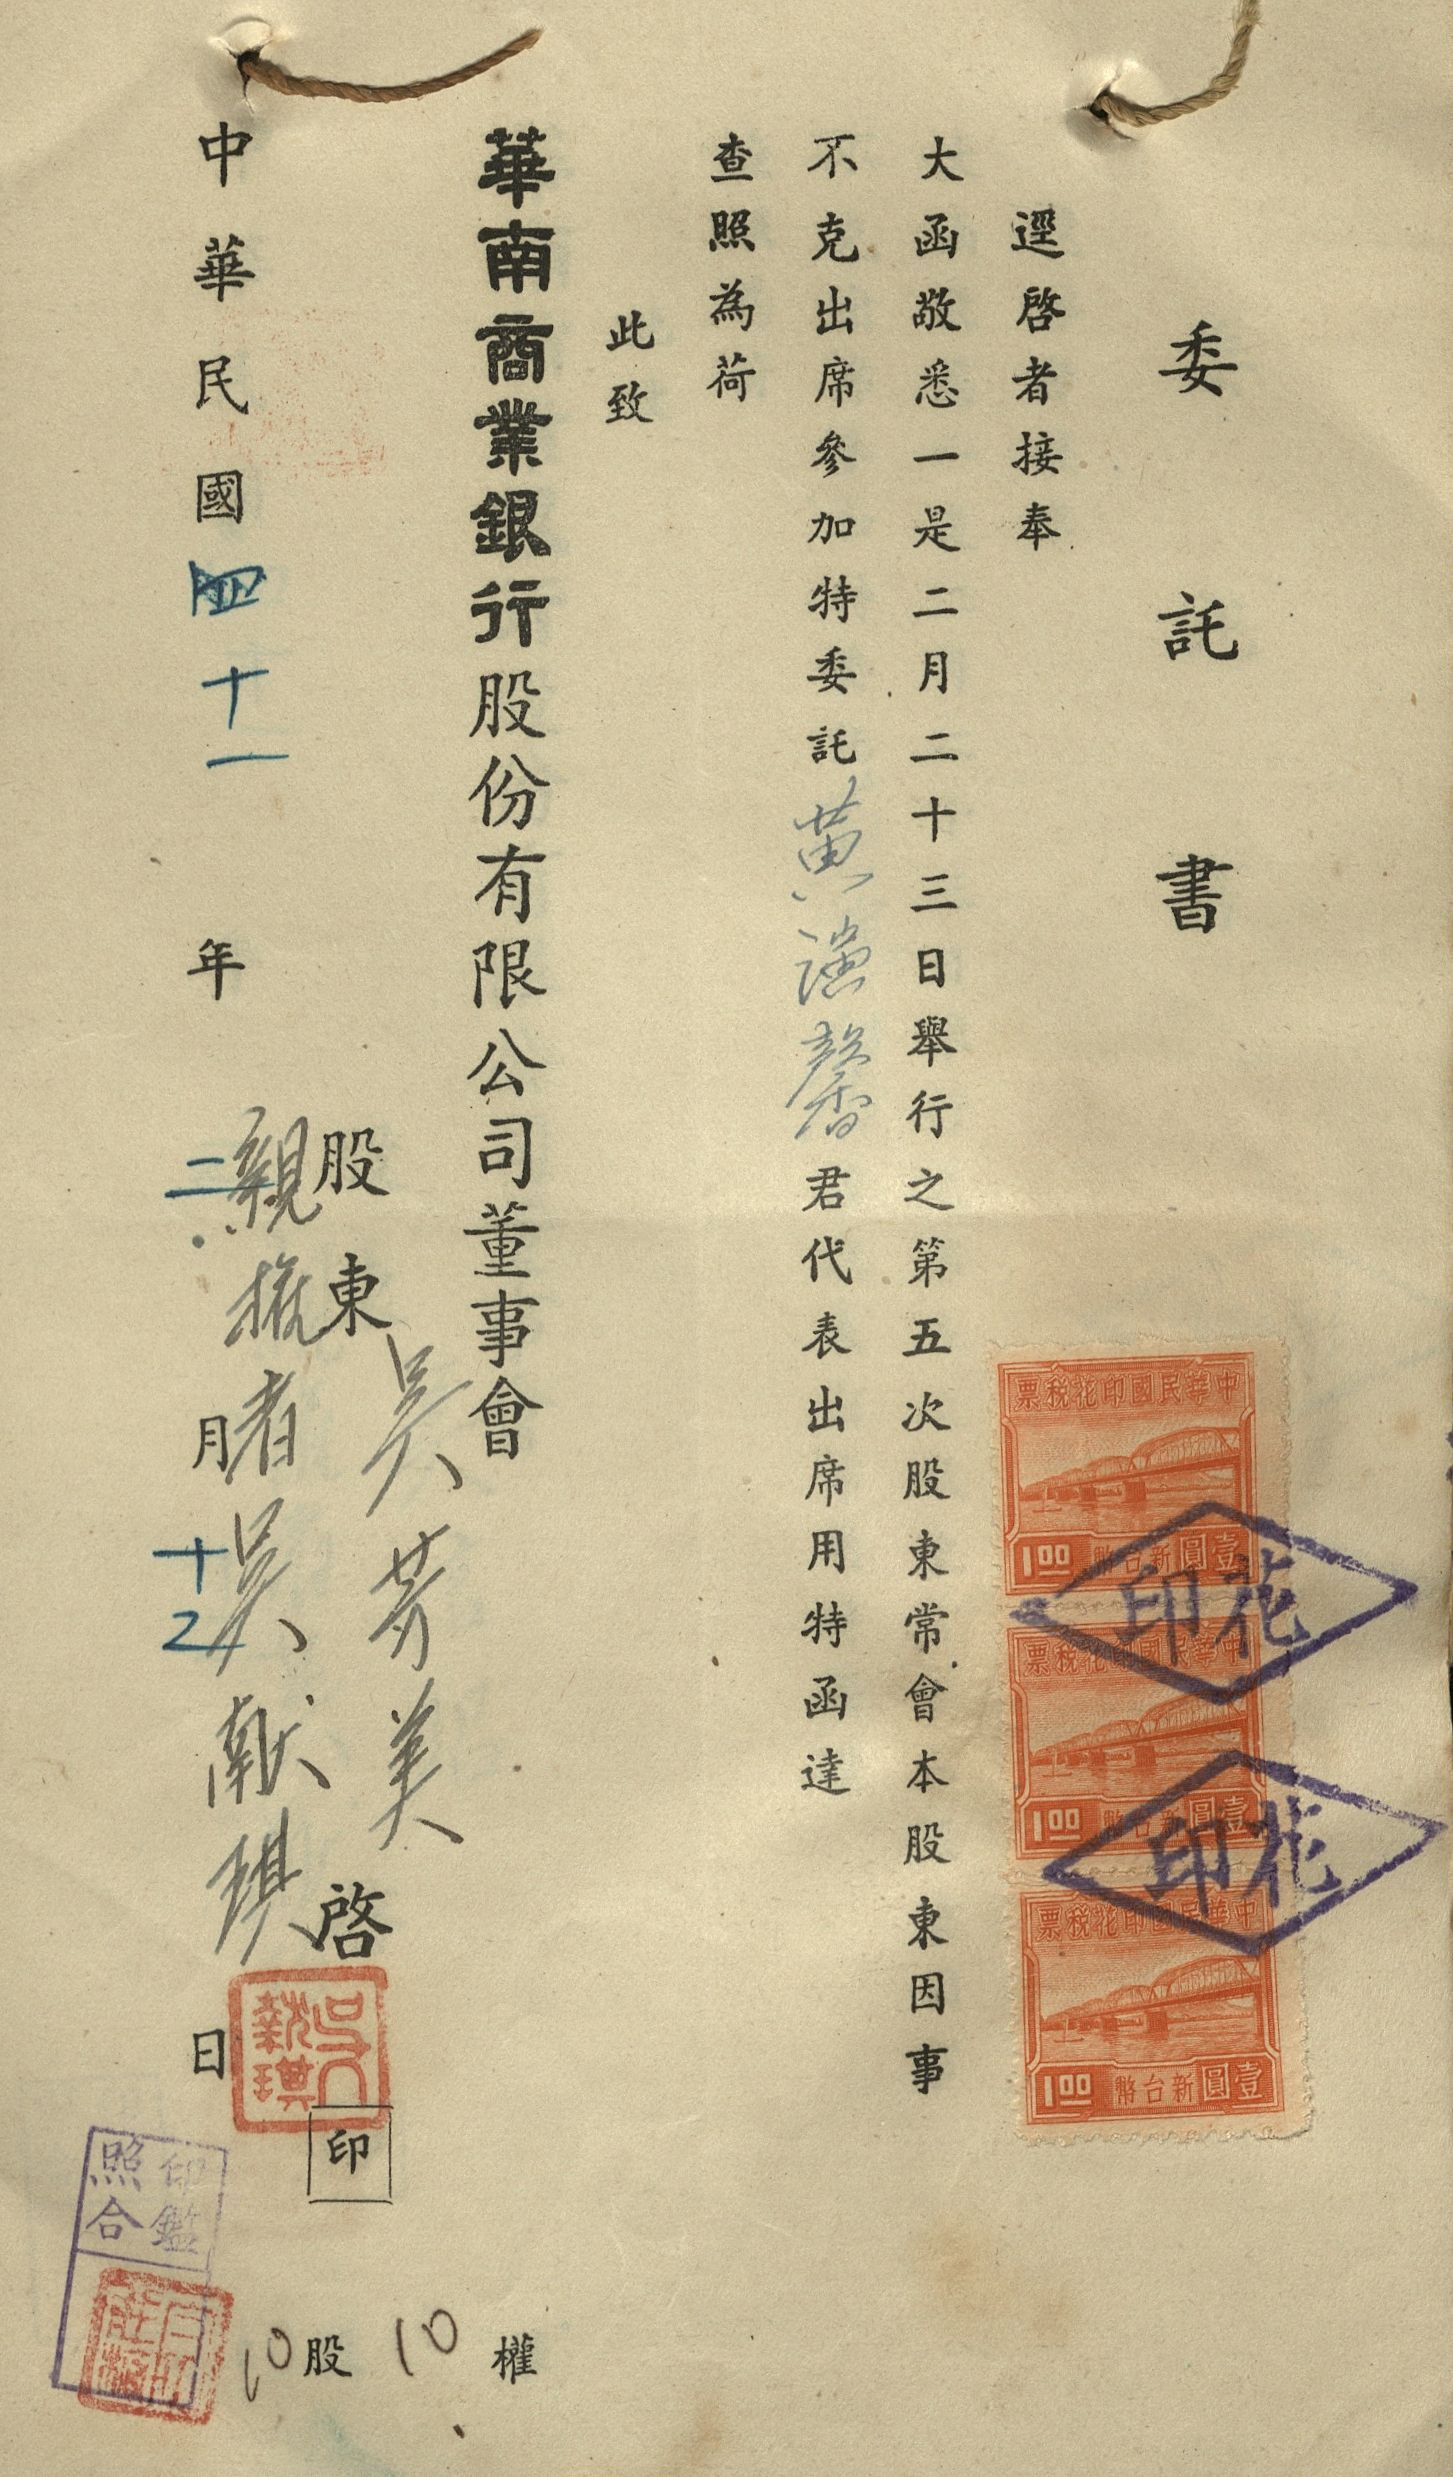 委託書
逕啓者接奉
大函敬悉一是二月二十三日舉行之第五次股東常會本股東因事
不克出席參加特委託黃漢馨君代表出席用特函達
查照為荷
此致
華南商業銀行股份有限公司董事會
股東吳芳美啓印
親權者吳献琪
中華民國四十一年二月十乙日
10股10權
中華民國印花稅票
1.00新台幣壹圓
中華民國印花稅票
1.00新台幣壹圓
中華民國印花稅票
1.00新台幣壹圓
印花
印花
吳献琪
印鑑照合